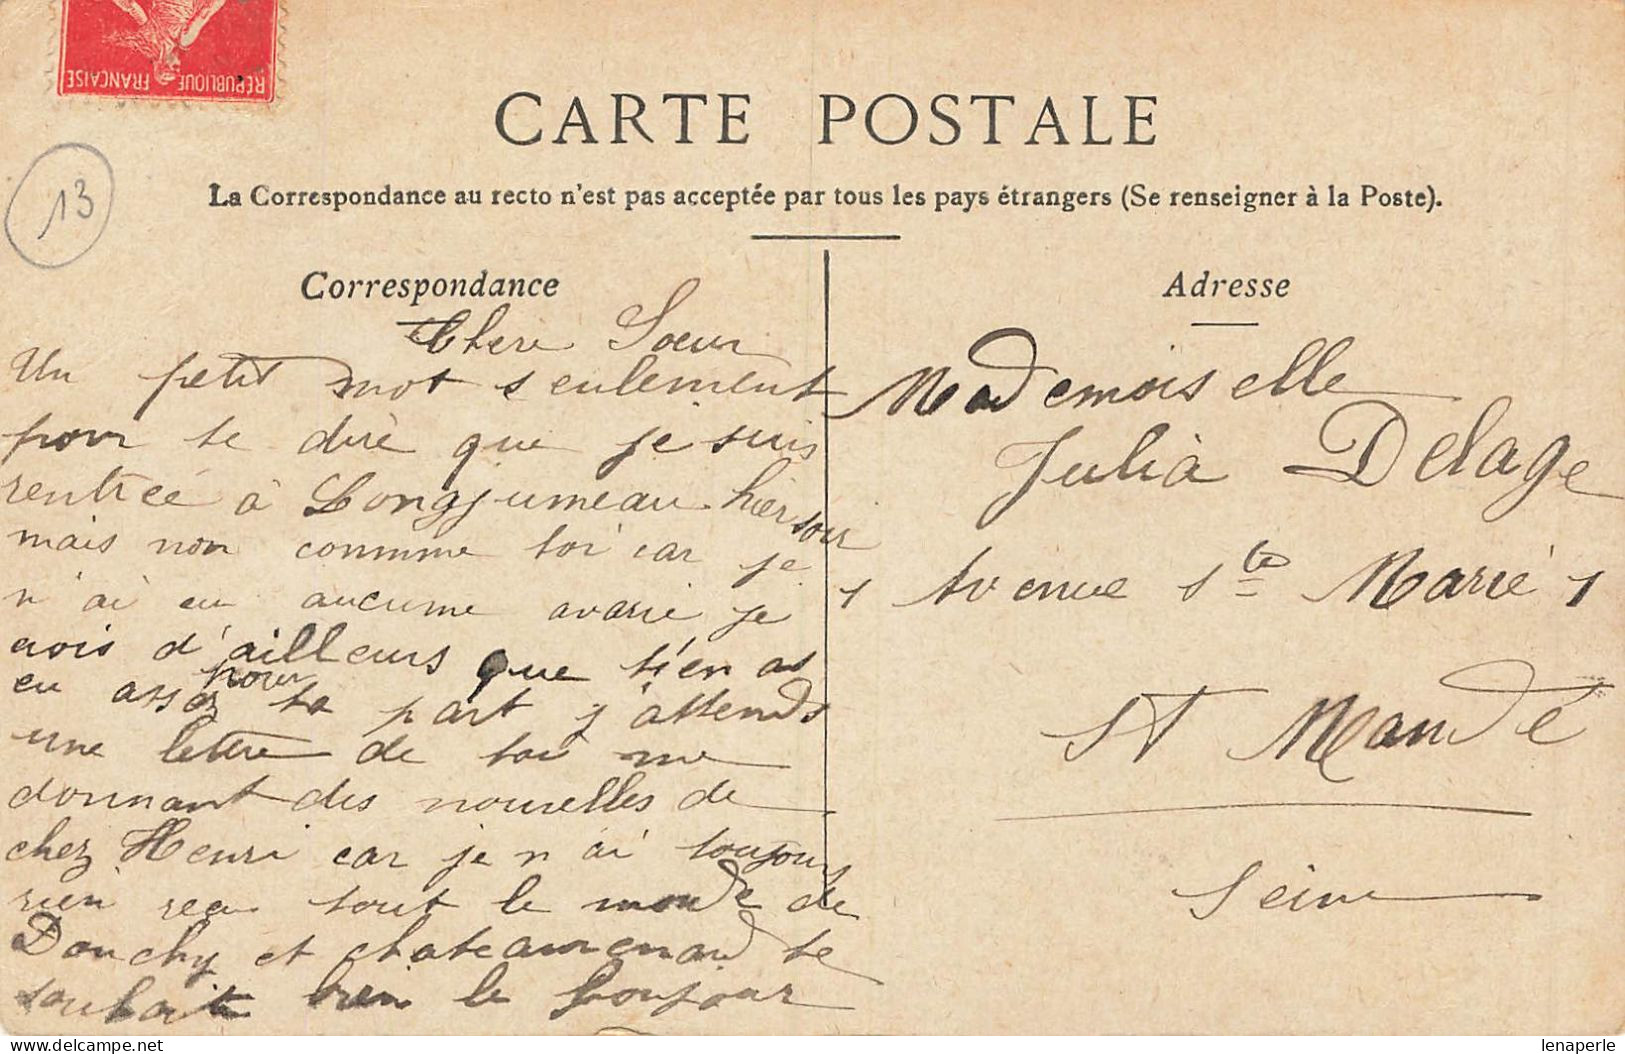 REPUBLIQUE FRANCAISE
CARTE POSTALE
La Correspondance au recto n'est pas acceptée par tous les pays étrangers (Se renseigner à la Poste).
13
Correspondance
Chere Soeur
Un petit mot seulement
pour te dire que je suis
rentrée à Longjumeau hier soir
mais non comme toi car je
n'ai eu aucume avarie je
crois d'ailleurs que t'en as
eu assez pour ta part j'attends
une lettre de toi me
donnant des nouvelles de
chez Henri car je n'ai toujours
rien reçu tout le monde de
Douchy et chateaurenard te
souhaite bien le bonjour
Adresse
Mademoiselle
Julia Delage
1 Avenue Ste Marie 1
St Mandé
Seine
lenaperle
delcampe.net